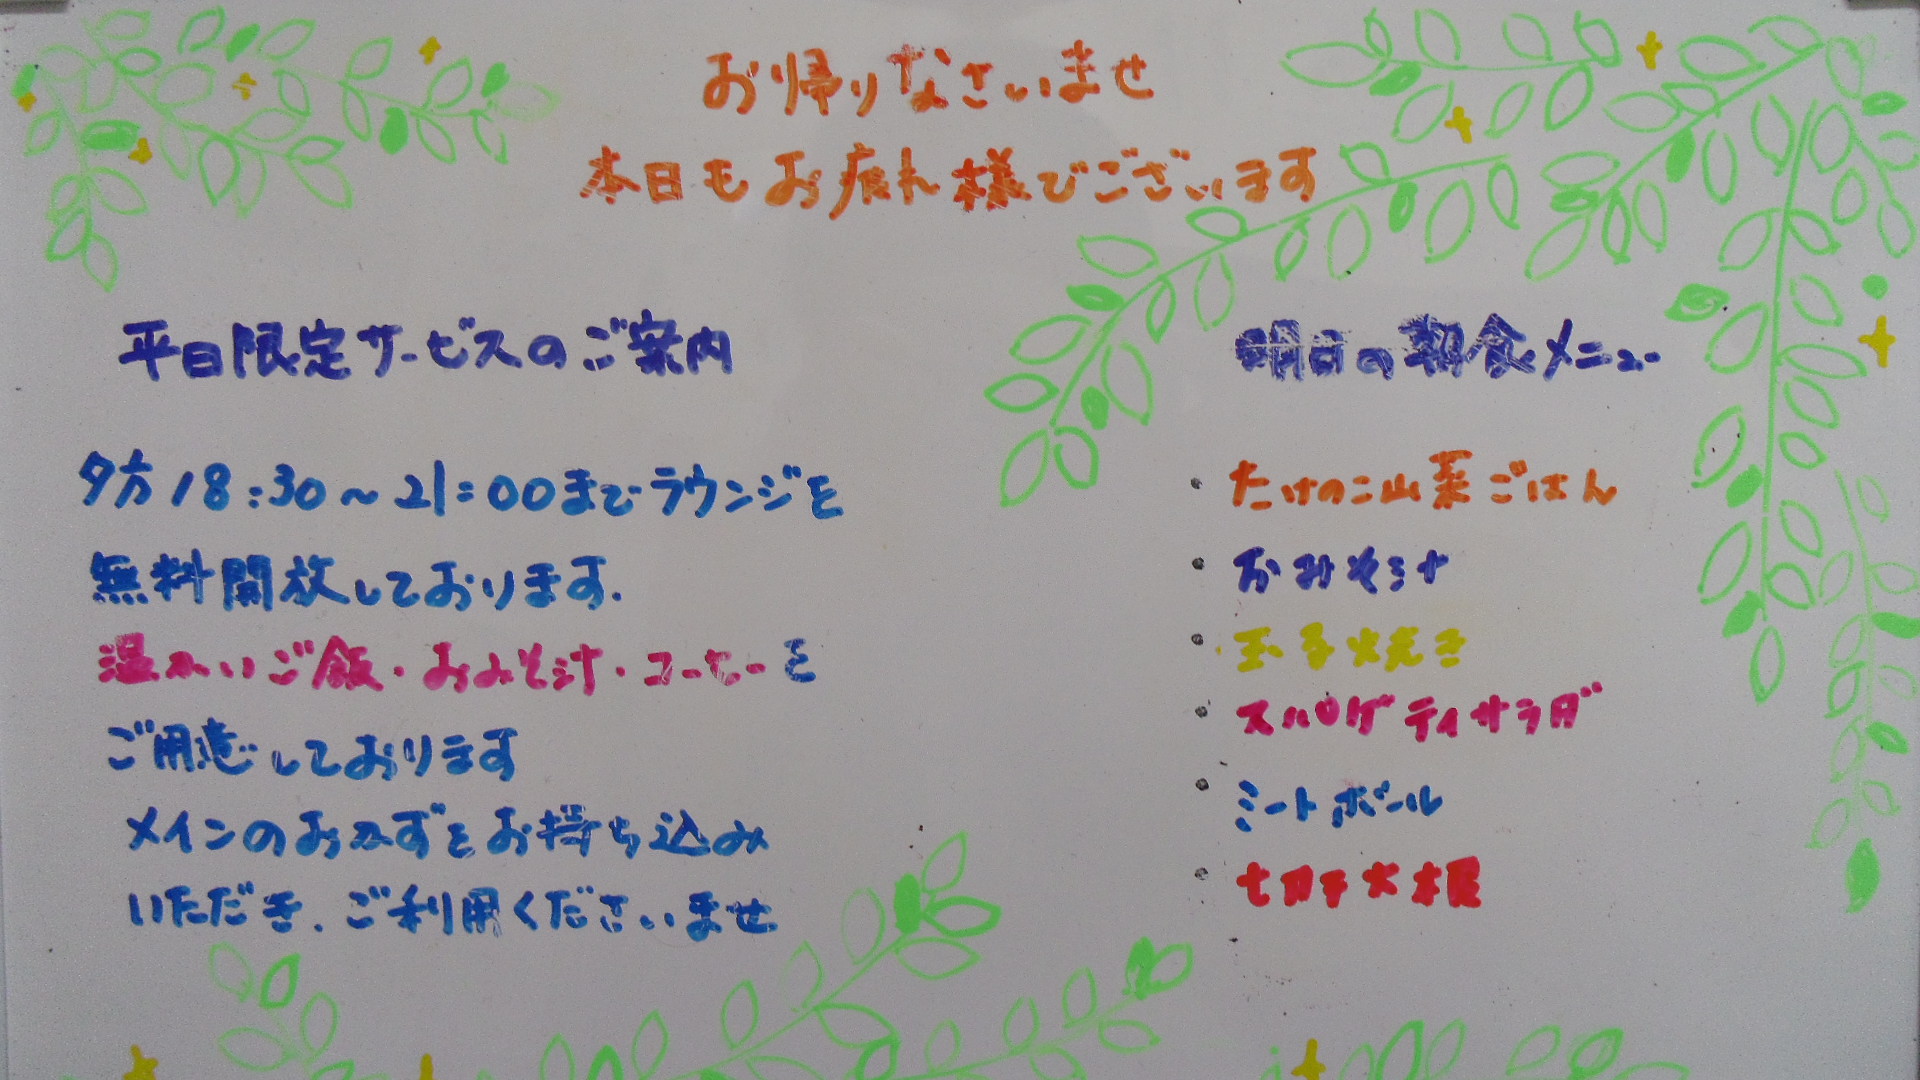 お帰りなさいませ
本日もお疲れ様でございます
平日限定サービスのご案内
夕方18:30～21:00までラウンジを
無料開放しております.
温かいご飯・おみそ汁・コーヒーを
ご用意しております
メインのおかずをお持ち込み
いただき、ご利用くださいませ
明日の朝食メニュー
・たけのこ山菜ごはん
・おみそ汁
・玉子焼き
・スパゲティサラダ
・ミートボール
・切干大根